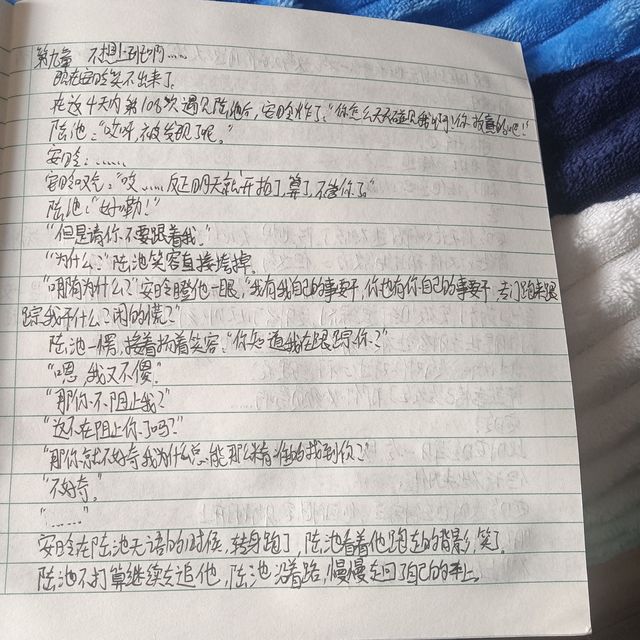 第九章 不想上班啊……
现在安昤笑不出来了。
在这4天内第108次遇见陈池后，安昤炸了：“你怎么天天碰见我啊！你故意的吧！”
陈池：“哎呀，被发现了呢。”
安昤：……
安昤叹气：“哎……反正明天就开拍了，算了，不管你了。”
陈池：“好嘞！”
“但是请你不要跟着我。”
“为什么？”陈池笑容直接垮掉。
“哪有为什么？”安昤瞪他一眼，“我有我自己的事要干，你也有你自己的事要干，专门跑来跟
踪我干什么？闲的慌？”
陈池一愣，接着扬着笑容：“你知道我在跟踪你？”
“嗯，我又不傻。”
“那你不阻止我？”
“这不在阻止你了吗？”
“那你就不好奇我为什么总能那么精准的找到你？”
“不好奇。”
“……”
安昤在陈池无语的时候，转身跑了，陈池看着他跑走的背影，笑了。
陈池不打算继续去追他，陈池沿着路，慢慢走回了自己的车上。